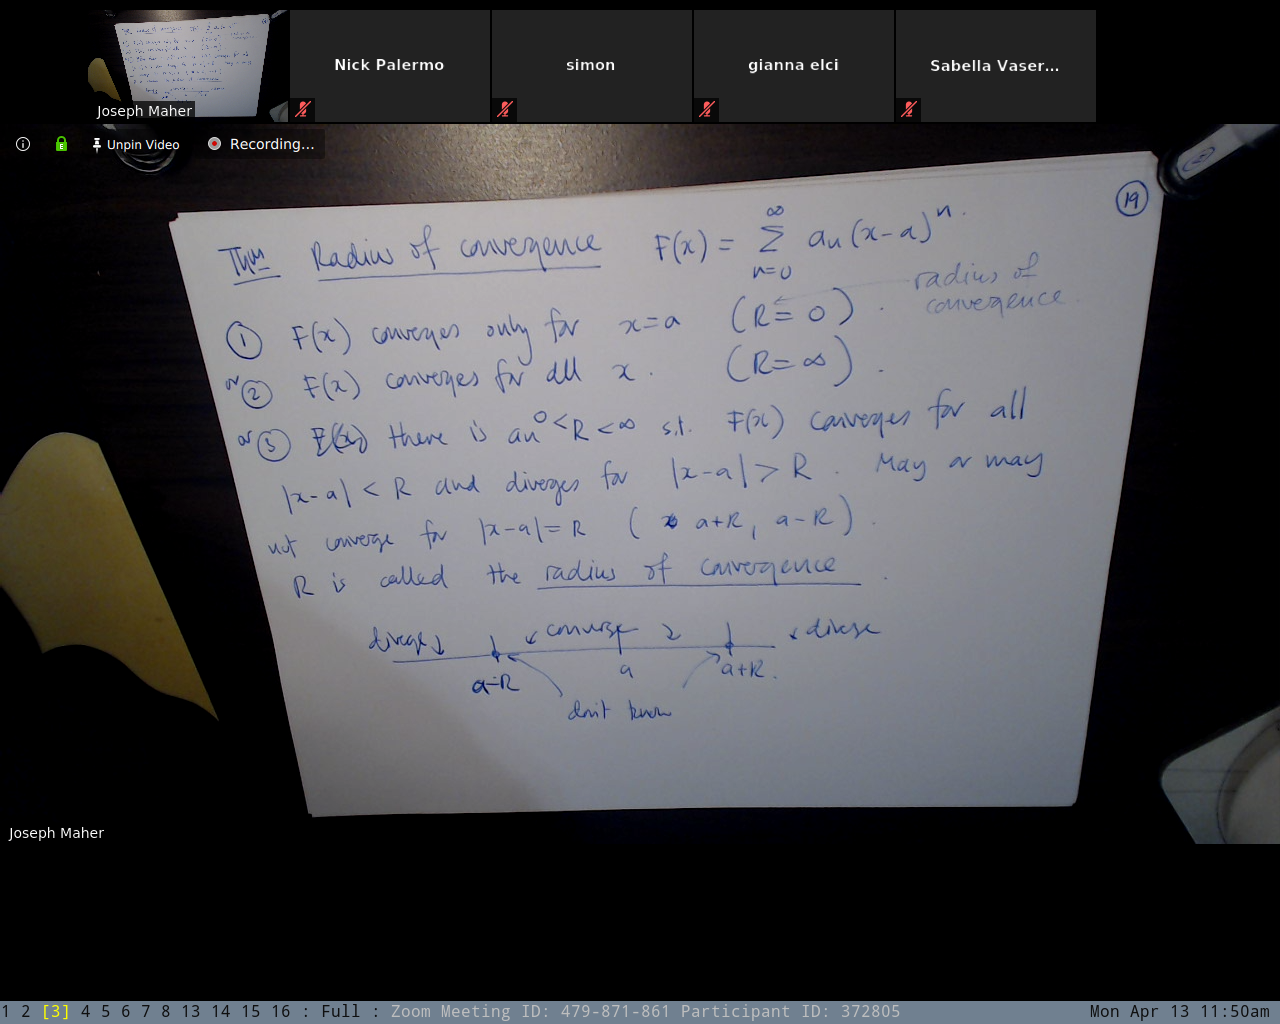 Nick Palermo
simon
gianna elci
Sabella Vaser...
Joseph Maher
Unpin Video
Recording...
19
Thm Radius of convergence F(x) = ∑_{n=0}^{∞} a_n (x-a)^n.
radius of convergence.
① F(x) converges only for x=a (R=0).
or ② F(x) converges for all x. (R=∞).
or ③ there is an 0<R<∞ s.t. F(x) converges for all
|x-a| < R and diverges for |x-a| > R. May or may
not converge for |x-a|=R (a+R, a-R).
R is called the radius of convergence.
diverge ↓ ↙ converge ↘ ↙ diverge
a-R a a+R.
don't know
Joseph Maher
1 2 [3] 4 5 6 7 8 13 14 15 16 : Full : Zoom Meeting ID: 479-871-861 Participant ID: 372805 Mon Apr 13 11:50am